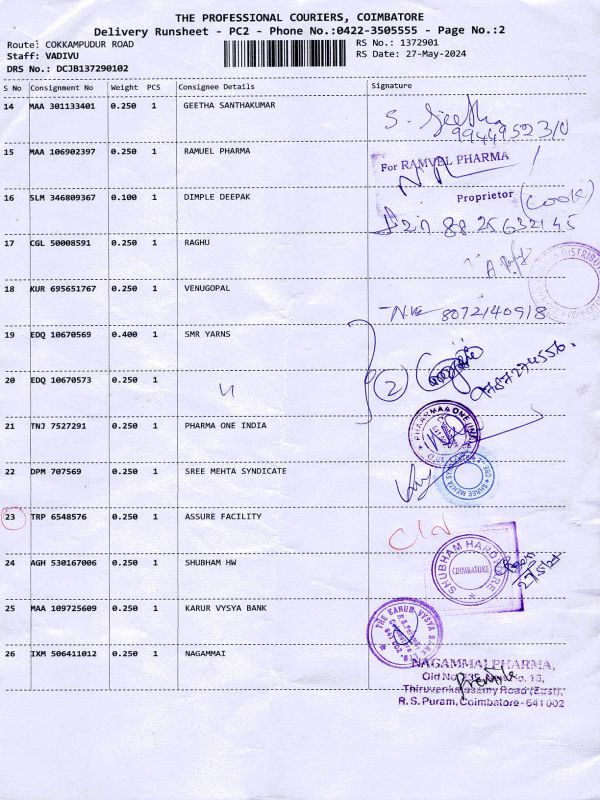 THE PROFESSIONAL COURIERS, COIMBATORE
Delivery Runsheet - PC2 - Phone No.:0422-3505555 - Page No.:2
Route: COKKAMPUDUR ROAD
RS No.: 1372901
Staff: VADIVU
RS Date: 27-May-2024
DRS No.: DCJB137290102
S No Consignment No Weight PCS Consignee Details Signature
14 MAA 301133401 0.250 1 GEETHA SANTHAKUMAR
S. Geetha
15 MAA 106902397 0.250 1 RAMUEL PHARMA
For RAMVEL PHARMA
Proprietor
16 SLM 346809367 0.100 1 DIMPLE DEEPAK
(Cook)
88 25632145
17 CGL 50008591 0.250 1 RAGHU
18 KUR 695651767 0.250 1 VENUGOPAL
8072140918
19 EDQ 10670569 0.400 1 SMR YARNS
2
20 EDQ 10670573 0.250 1
21 TNJ 7527291 0.250 1 PHARMA ONE INDIA
PHARMA ONE
22 DPM 707569 0.250 1 SREE MEHTA SYNDICATE
23 TRP 6548576 0.250 1 ASSURE FACILITY
24 AGH 530167006 0.250 1 SHUBHAM HW
SHUBHAM HARDWARE
COIMBATORE
25 MAA 109725609 0.250 1 KARUR VYSYA BANK
THE KARUR VYSYA BANK LTD
26 IXM 506411012 0.250 1 NAGAMMAI
NAGAMMAI PHARMA,
Thiruvenkatasamy Road (East),
R.S. Puram, Coimbatore - 641 002